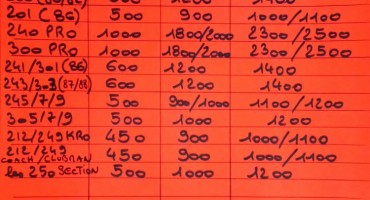 201 (86) 500 900 1000/1100
240 PRO 1000 1800/2000 2300/2500
300 PRO 1000 1800/2000 2300/2500
241/3.1(86) 600 1200 1400
243/3.3(87/88) 600 1200 1400
245/7/9 500 900/1000 1100/1200
3.5/7/9 500 1000 1200
212/249 KRO 450 900 1000/1100
212/249
COACH/CLUBMAN 450 900 1000/1100
les 250 SECTION 500 1000 1200